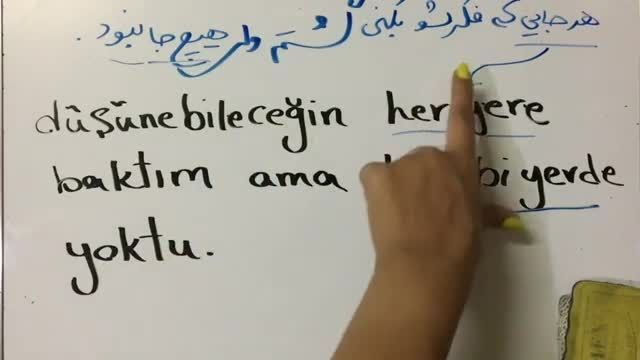 هرجایی که فکرشو بکنی گشتم ولی هیچ جا نبود.
düşünebileceğin her yere
baktım ama yerde
yoktu.